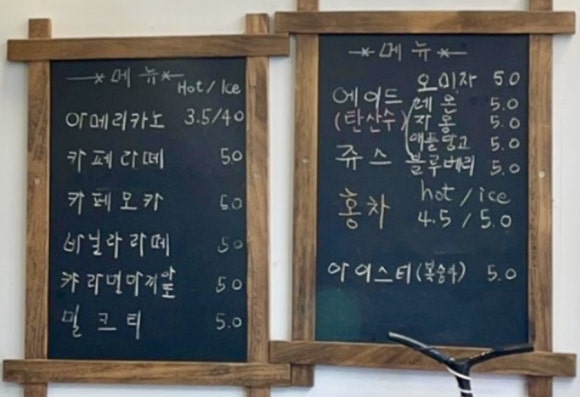 메뉴
Hot / Ice
아메리카노 3.5/4.0
카페라떼 5.0
카페모카 5.0
바닐라라떼 5.0
캬라멜마끼아또 5.0
밀크티 5.0
메뉴
에이드 오미자 5.0
(탄산수) 레몬 5.0
자몽 5.0
애플망고 5.0
쥬스 블루베리 5.0
hot / ice
홍차 4.5 / 5.0
아이스티(복숭아) 5.0